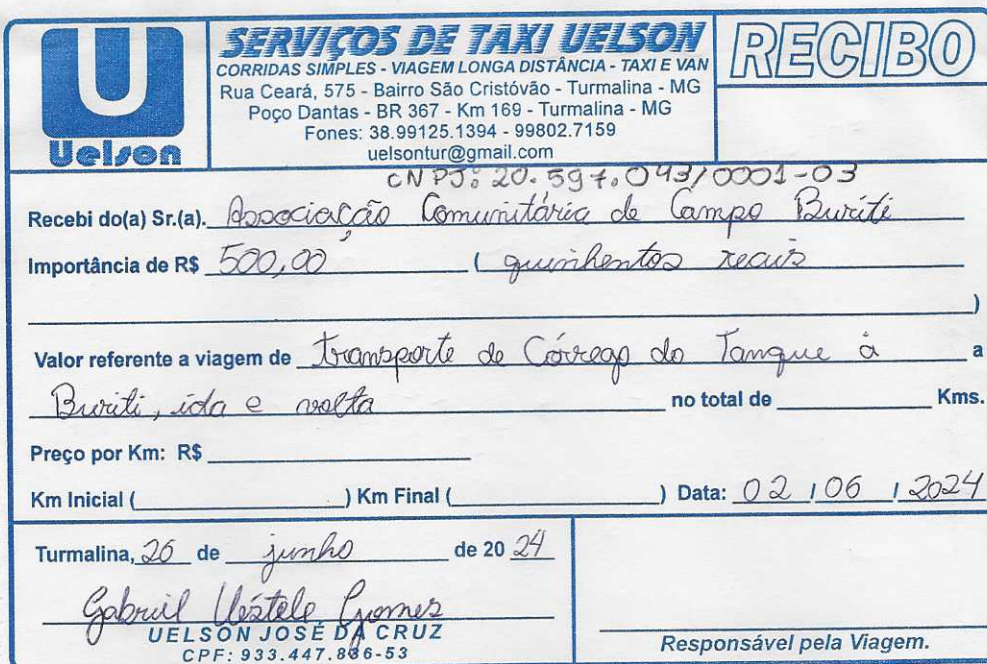 U
Uelson
SERVIÇOS DE TAXI UELSON
CORRIDAS SIMPLES - VIAGEM LONGA DISTÂNCIA - TAXI E VAN
Rua Ceará, 575 - Bairro São Cristóvão - Turmalina - MG
Poço Dantas - BR 367 - Km 169 - Turmalina - MG
Fones: 38.99125.1394 - 99802.7159
uelsontur@gmail.com
RECIBO
CNPJ: 20.597.043/0001-03
Recebi do(a) Sr.(a). Associação Comunitária de Campo Buriti
Importância de R$ 500,00 ( quinhentos reais
)
Valor referente a viagem de transporte de Córrego do Tanque à a
Buriti, ida e volta no total de Kms.
Preço por Km: R$
Km Inicial ( ) Km Final ( ) Data: 02 / 06 / 2024
Turmalina, 26 de junho de 20 24
Gabriel Gomes
UELSON JOSÉ DA CRUZ
CPF: 933.447.836-53
Responsável pela Viagem.